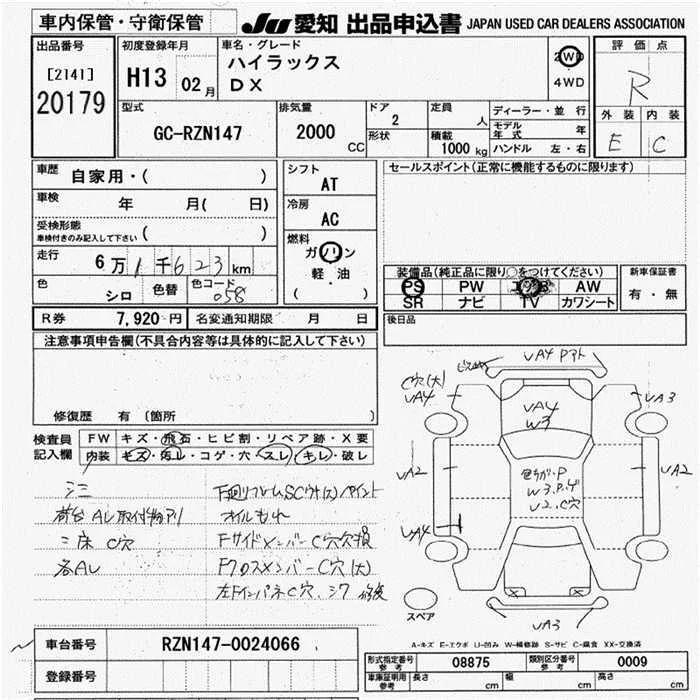 車内保管・守衛保管
JU 愛知 出品申込書 JAPAN USED CAR DEALERS ASSOCIATION
出品番号
[2141]
20179
初度登録年月
H13 02月
車名・グレード
ハイラックス
DX
2WD
4WD
評価点
R
外装 内装
E C
型式
GC-RZN147
排気量
2000 CC
ドア
2
形状
定員
人
積載
1000 kg
ディーラー・並行
モデル年式 年
ハンドル 左・右
車歴 自家用・( )
車検 年 月( 日)
受検形態
車検付きのみ記入して下さい ( )
走行 6万1千623km
色 シロ 色替 色コード 058
シフト
AT
冷房
AC
燃料
ガソリン
軽・油
( )
セールスポイント(正常に機能するものに限ります)
装備品(純正品に限り○をつけてください)
PS PW AW
SR ナビ TV カワシート
新車保証書
有・無
R券 7,920円 名変通知期限 月 日
後日品
注意事項申告欄(不具合内容等は具体的に記入して下さい)
修復歴 有 〔箇所
検査員記入欄
FW キズ・飛石・ヒビ割・リペア跡・X要
内装 キズ・汚レ・コゲ・穴・スレ・キレ・破レ
荷台AL取付物アリ
オイルもれ
三床 C穴
FサイドメンバーC穴欠損
各AL
FクロスメンバーC穴(大)
左FインパネC穴、シワ 修復
UA4 アト
C穴(大)
UA4
UA3
UA4
W3
UA2
色ヌケ・P
W3.P.ゲ
U2.C穴
UA2
UA4
UA3
スペア
A-キズ E-エクボ U-凹み W-補修跡 S-サビ C-腐食 XX-交換済
車台番号 RZN147-0024066
登録番号
形式指定番号 参考 08875 類別区分番号 参考 0009
車庫証明用 参考 長さ cm 幅 cm 高さ cm